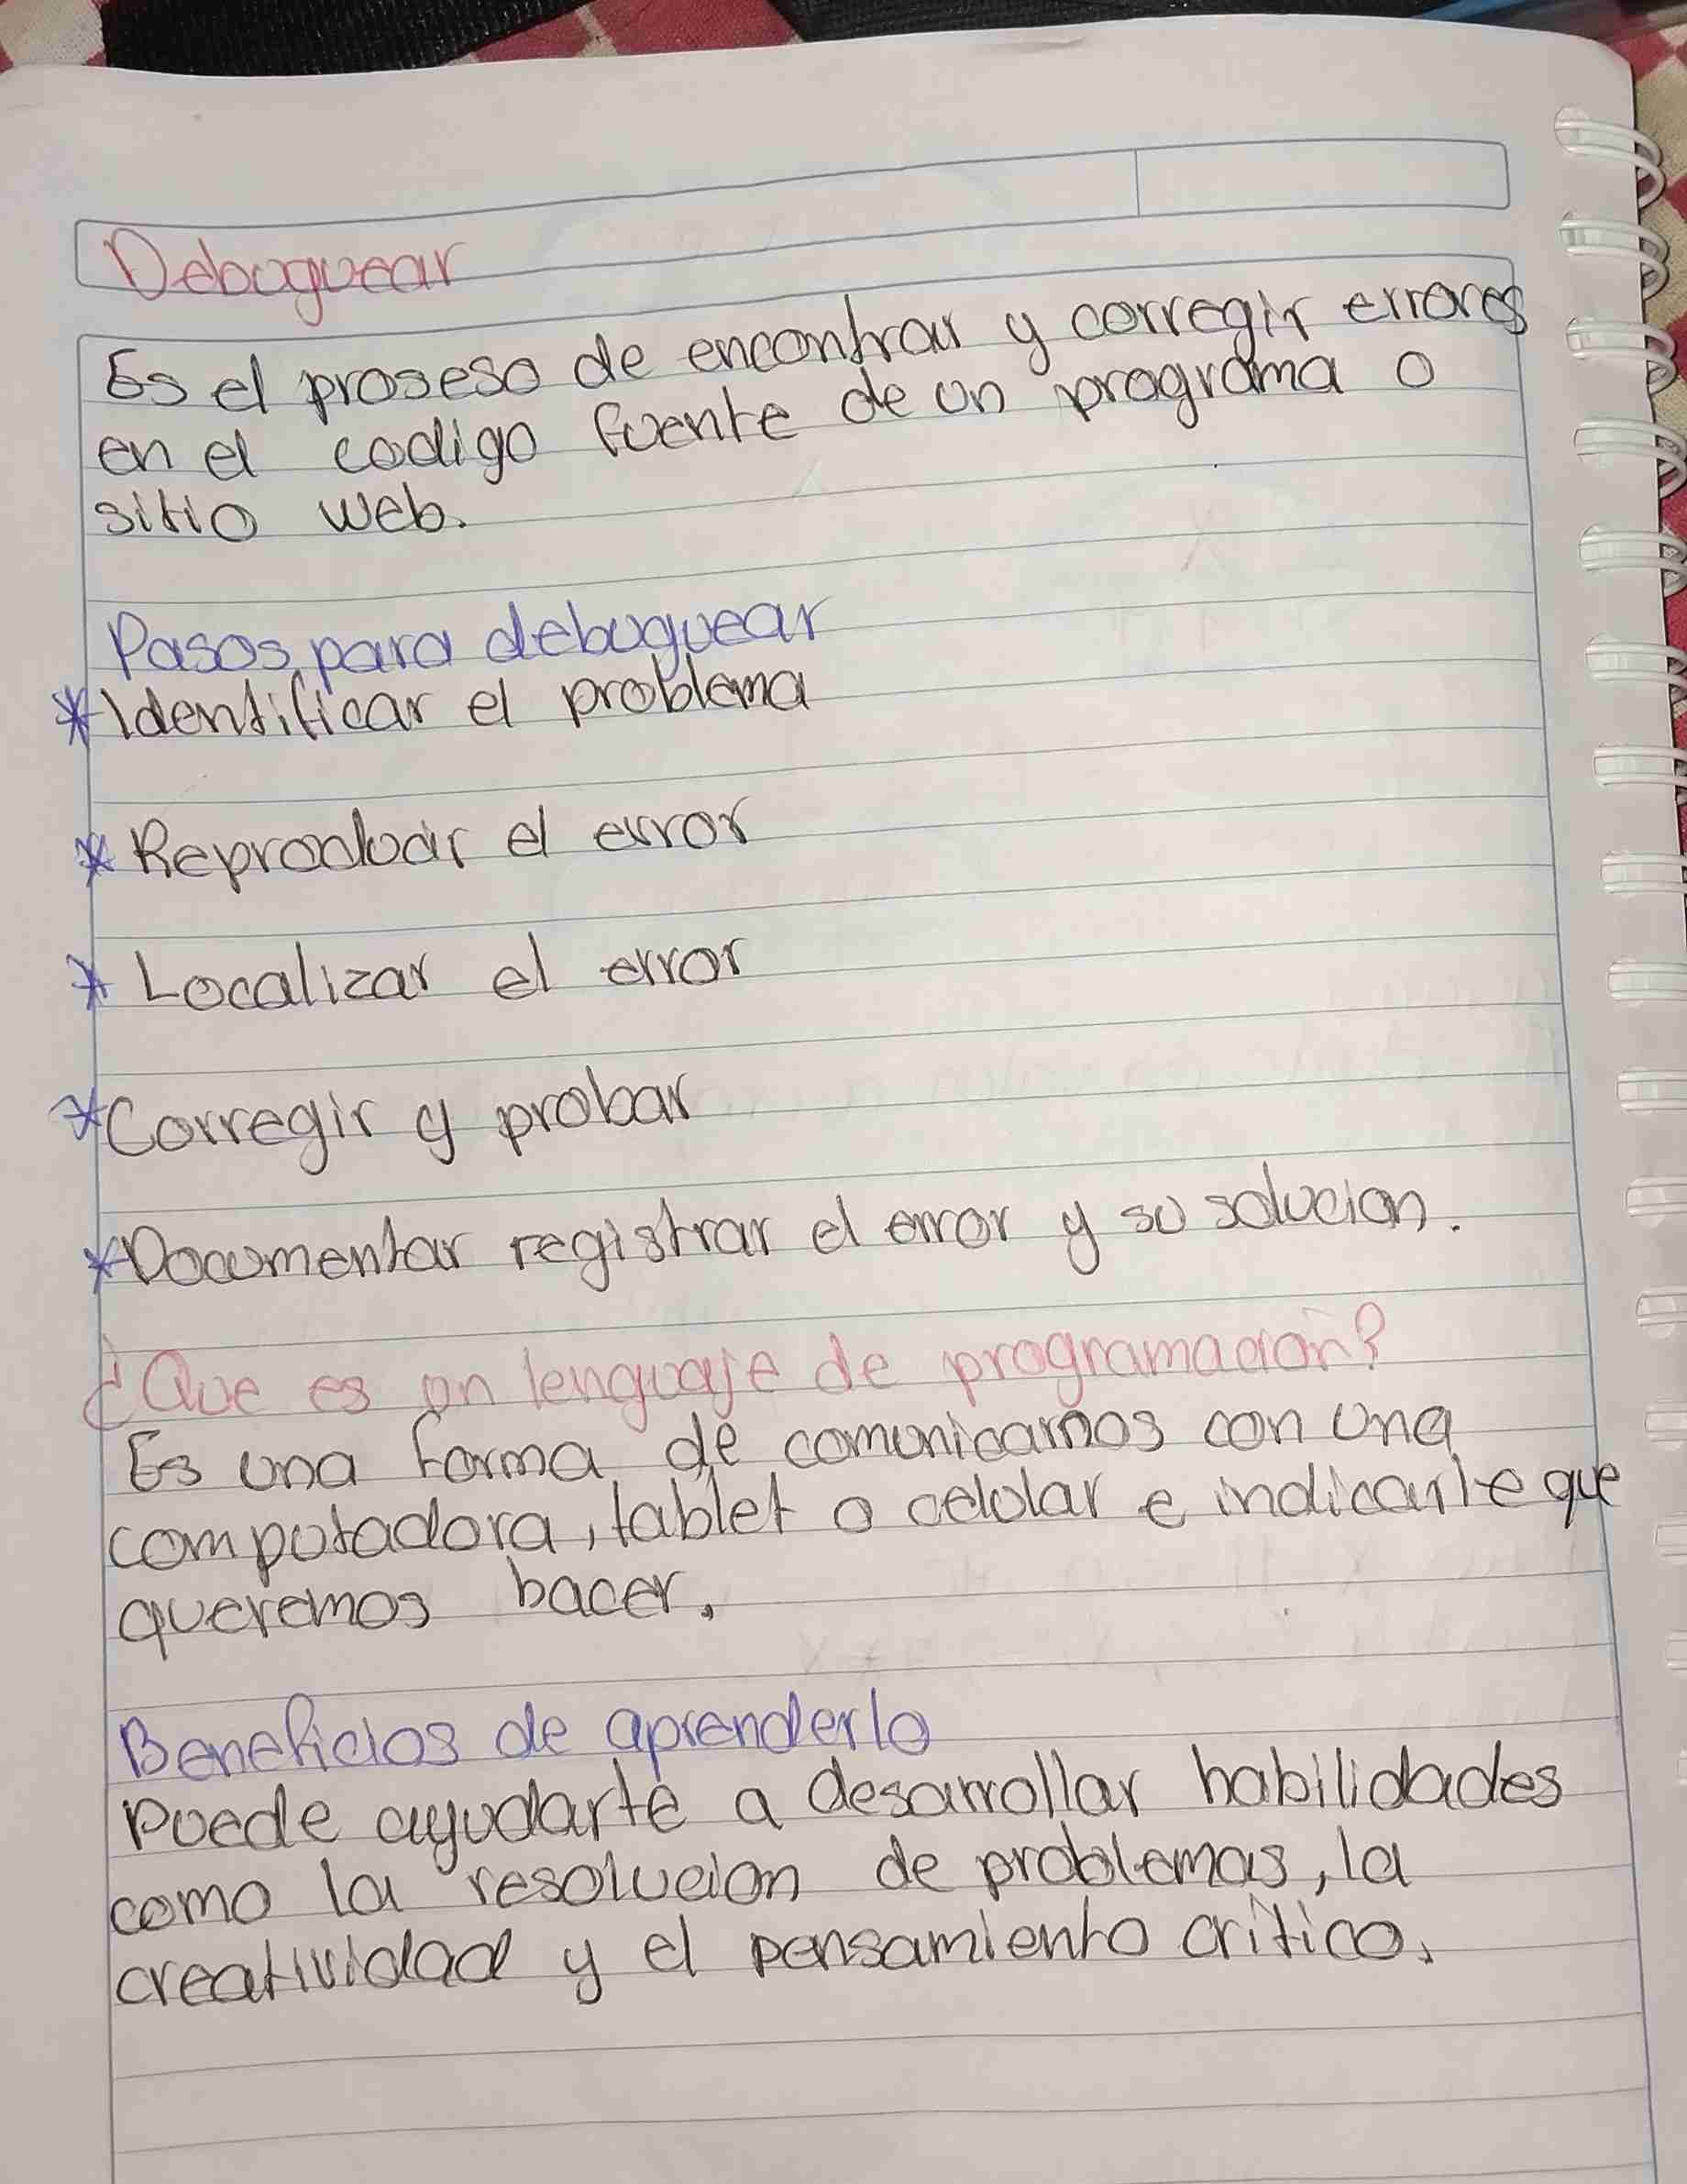 Debuguear
Es el proseso de encontrar y corregir errores
en el codigo fuente de un programa o
sitio web.
Pasos para debuguear
*Identificar el problema
* Reproducir el error
* Localizar el error
*Corregir y probar
*Documentar registrar el error y su solucion.
¿Que es un lenguaje de programacion?
Es una forma de comunicarnos con una
computadora, tablet o celular e indicarle que
queremos hacer.
Beneficios de aprenderlo
Puede ayudarte a desarrollar habilidades
como la resolucion de problemas, la
creatividad y el pensamiento critico.